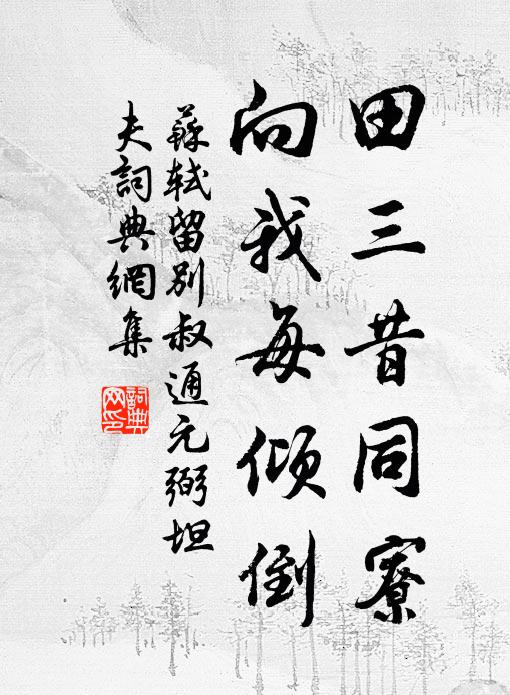 田三昔同寮
向我每傾倒
蘇軾留別叔通元弼坦
夫詞典網集
詞典
网印